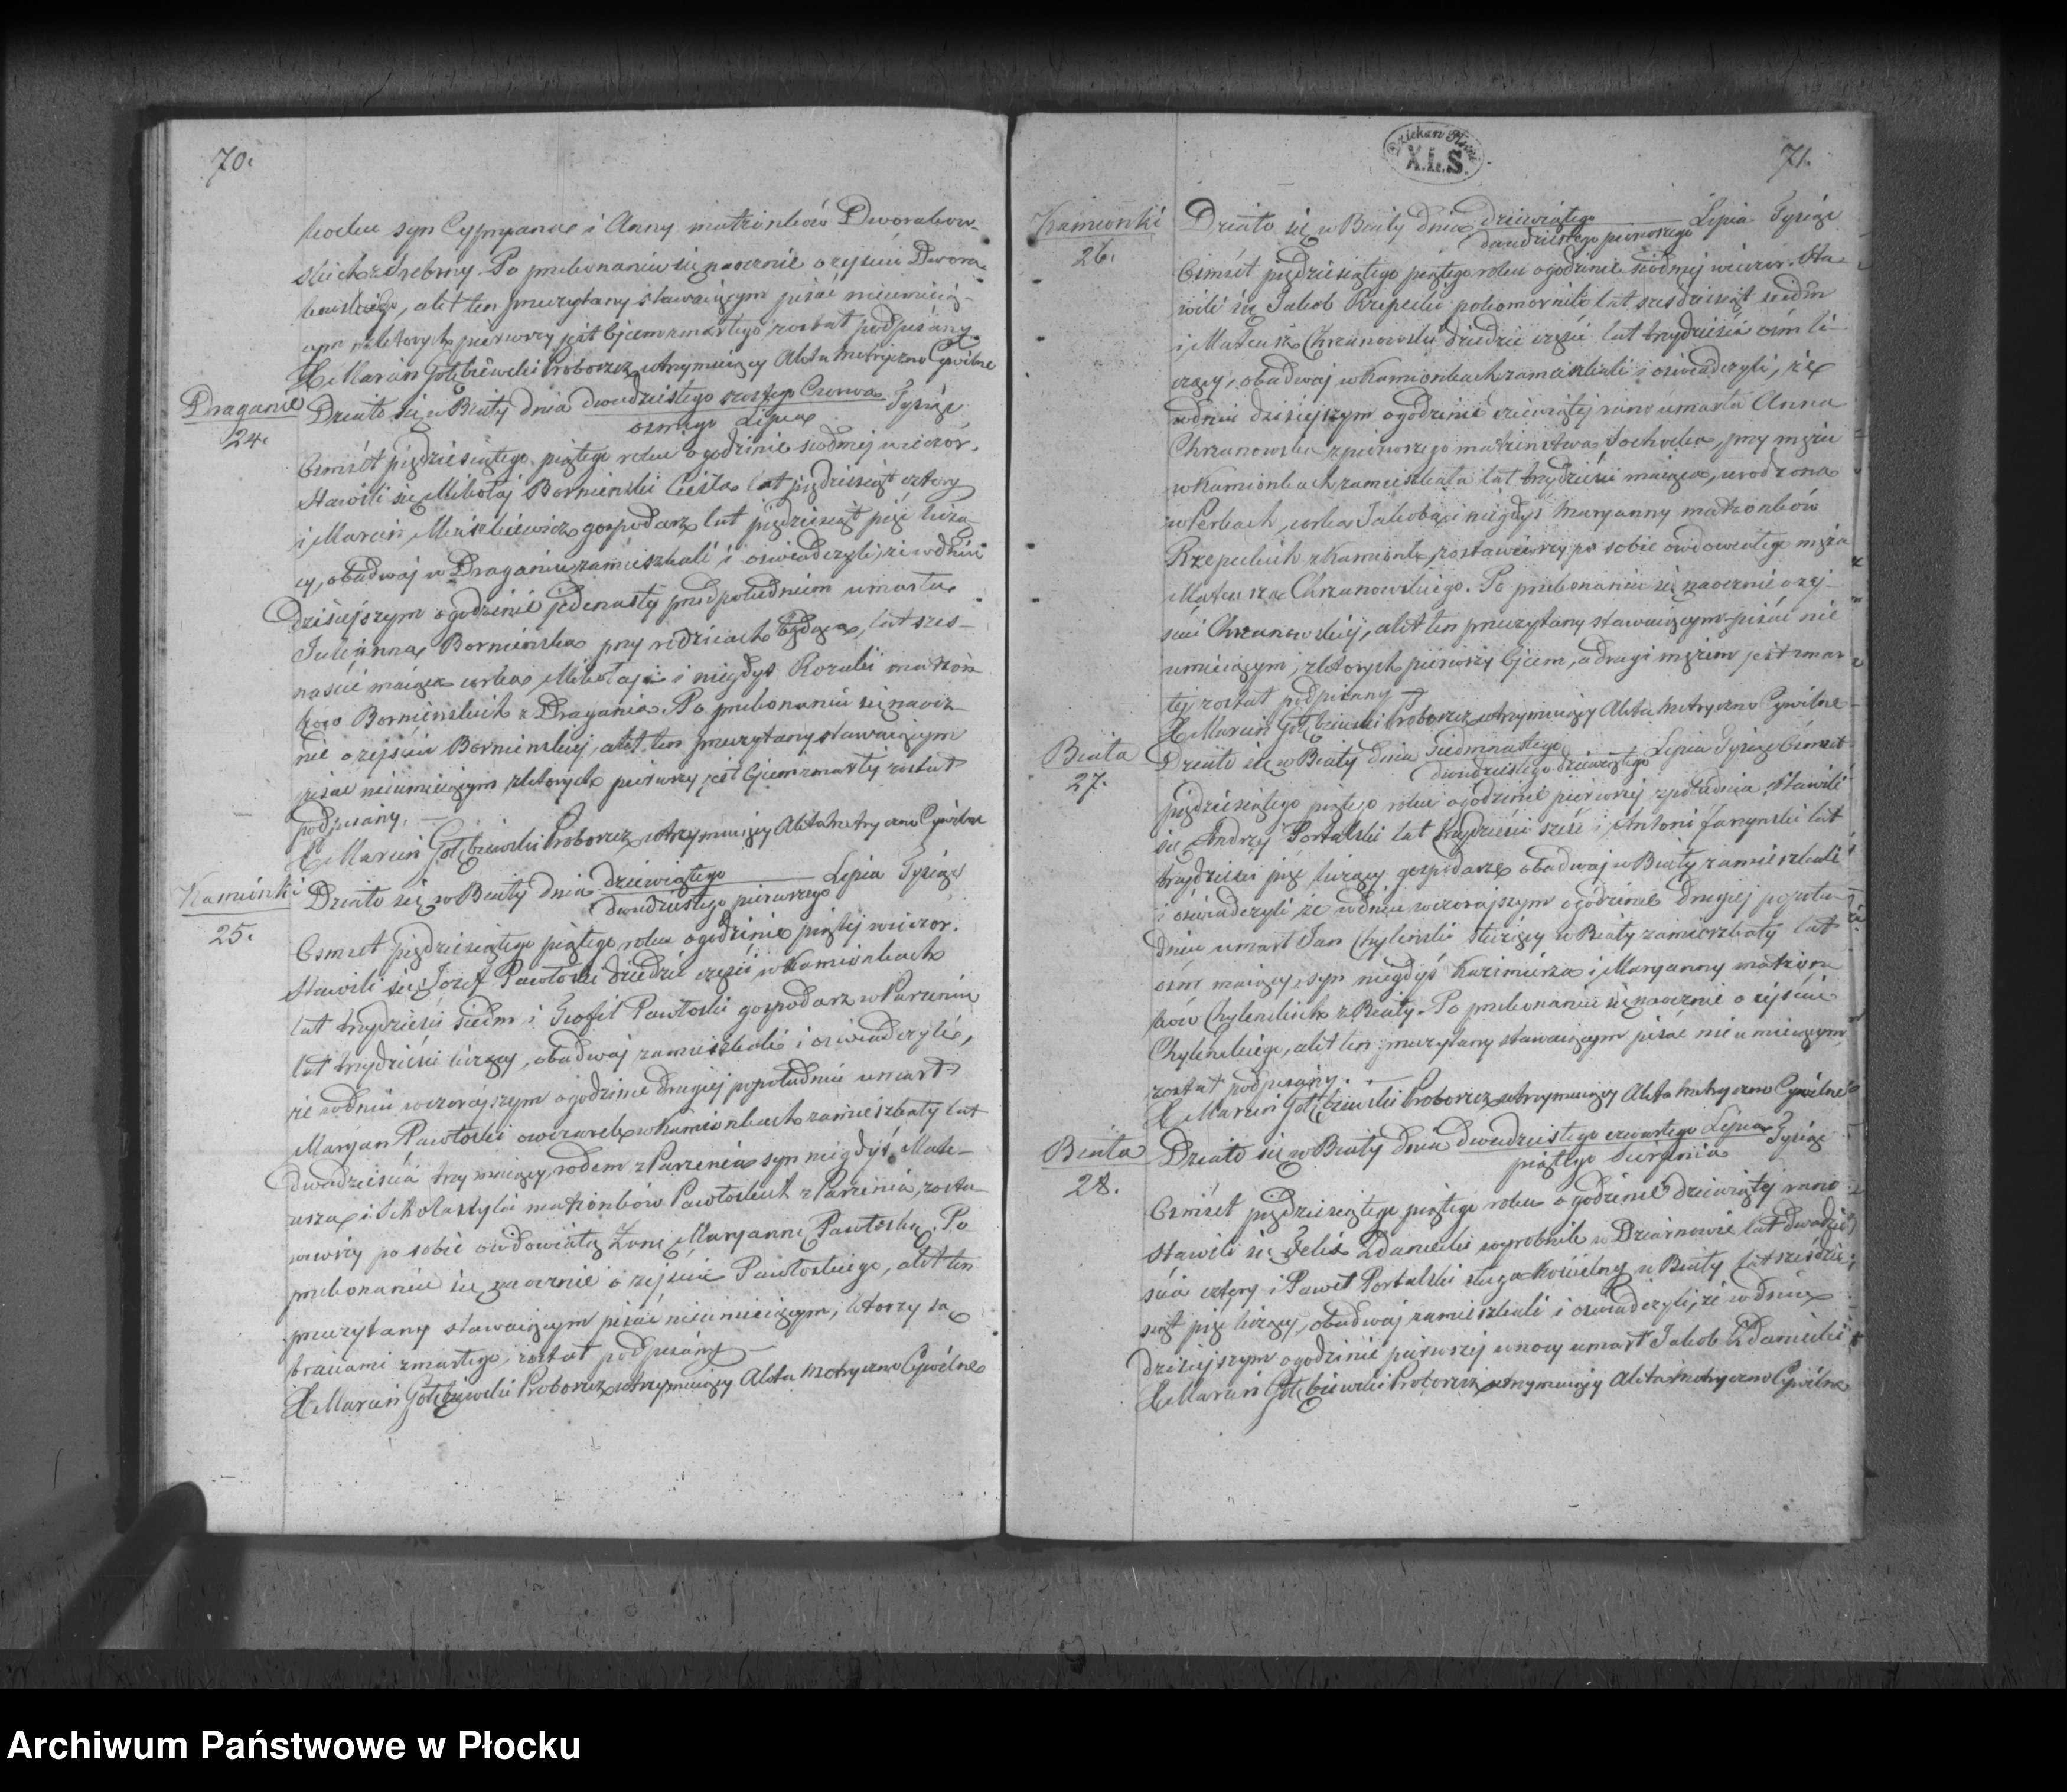 70.
bocku syn Cypryana i Anny małżonków Dworakow-
skich z Srebrny. Po przekonaniu się naocznie o zejsciu Dwora-
kowskiego, akt ten przeczytany stawaiącym pisać nieumieią-
cym z których pierwszy jest Ojcem zmarłego został podpisany.
X Marcin Gołębiewski Proboszcz utrzymuiący Akta Metryczno Cywilne
Draganie
24.
Działo się w Biały dnia dwudziestego szostego Czerwca Tysiąc
osmego Lipca
Osmset piędziesiątego piątego roku o godzinie siodmej wieczór.
Stawili się Mikołaj Bornieński Cieśla lat pięćdziesiąt cztery
i Marcin Miszkiewicz gospodarz lat pięćdziesiąt pięć liczą-
cy, obadwaj w Draganiu zamieszkali i oswiadczyli, że w dniu
dzisiejszym o godzinie jedenasty przed południem umarła
Julianna Bornieńska przy rodzicach będąca, lat szes-
naście maiąca corka Mikołaja i niegdyś Rozalii małżon-
ków Bornieńskich z Dragania. Po przekonaniu się naocz-
nie o zejściu Bornienskiej, akt ten przeczytany stawaiącym
pisać nieumieiącym z których pierwszy jest Ojcem zmarłej został
podpisany. —
X Marcin Gołębiewski Proboszcz utrzymuiący Akta Metryczno Cywilne
Kamionki
25.
Działo się w Biały dnia dziewiątego Lipca Tysiąc
dwudziestego pierwszego
Osmset piędziesiątego piątego roku o godzinie piątej wieczor.
Stawili się Jozef Pawłoski dziedzic części w Kamionkach
lat trzydzieści siedm i Teofil Pawłoski gospodarz w Parzeniu
lat trzydzieści liczący, obadwaj zamieszkali i oswiadczyli,
że w dniu wczorajszym o godzinie drugiej popołudniu umarł
Maryan Pawłoski owczarek w Kamionkach zamieszkały lat
dwadzieścia trzy maiący, rodem z Parzenia syn niegdyś Mate-
usza i Scholastyki małżonków Pawłoskich z Parzenia, zosta-
wiwszy po sobie owdowiałą Żonę Maryannę Pawłoską. Po
przekonaniu się naocznie o zejściu Pawłoskiego, akt ten
przeczytany stawaiącym pisać nieumieiącym, ktorzy są
braciami zmarłego, został podpisany
X Marcin Gołębiewski Proboszcz utrzymuiący Akta Metryczno Cywilne
Dziekan Płocki
X.L.S.
71.
Kamionki
26.
Działo się w Biały dnia dziewiątego Lipca Tysiąc
dwudziestego pierwszego
Osmset pięździesiątego piątego roku o godzinie siodmej wieczór. Sta-
wili się Jakob Rzepecki pokomornik lat szesdziesiąt siedm
i Mateusz Chrzanowski dziedzic części lat trzydzieści ośm li-
czący, obadwaj w Kamionkach zamieszkali i oswiadczyli, że
w dniu dzisiejszym o godzinie dziewiątej rano umarła Anna
Chrzanowska z pierwszego małżeństwa Sochocka, przy mężu
w Kamionkach zamieszkała lat trzydzieści maiąca, urodzona
w Perkach, corka Jakoba i niegdyś Maryanny małżonków
Rzepeckich z Kamionk, zostawiwszy po sobie owdowiałego męża
Mateusza Chrzanowskiego. Po przekonaniu się naocznie o zej-
ściu Chrzanowskiej, akt ten przeczytany stawaiącym pisać nie
umieiącym, z ktorych pierwszy Ojcem, a drugi mężem jest zmar-
łej został podpisany
X Marcin Gołębiewski Proboszcz utrzymuiący Akta Metryczno Cywilne
Biała
27.
Działo się w Biały dnia siedmnastego Lipca Tysiąc Osmset
dwudziestego dziewiątego
pięździesiątego piątego roku o godzinie pierwszej z południa. Stawili
się Andrzej Portalski lat trzydzieści sześć i Antoni Jaszyński lat
trzydzieści pięć liczący gospodarze obadwaj w Biały zamieszkali
i oświadczyli że w dniu wczorajszym o godzinie drugiej popołu-
dniu umarł Jan Chyliński służący w Biały zamieszkały lat
ośm maiący, syn niegdyś Kazimierza i Maryanny małżon-
ków Chylinskich z Biały. Po przekonaniu się naocznie o zejściu
Chylinskiego, akt ten przeczytany stawaiącym pisać nieumieiącym,
został podpisany. —
X Marcin Gołębiewski Proboszcz utrzymuiący Akta Metryczno Cywilne
Biała
28.
Działo się w Biały dnia dwudziestego czwartego Lipca Tysiąc
piątego Sierpnia
Osmset pięździesiątego piątego roku o godzinie dziewiątej rano
Stawili się Felix Zdanecki wyrobnik w Dziarnowie lat dwadzie-
ścia cztery i Paweł Portalski sługa Kościelny w Biały lat sześdzie-
siąt pięć liczący, obadwaj zamieszkali i oswiadczyli, że w dniu
dzisiejszym o godzinie pierwszej w nocy umarł Jakob Zdanecki
X Marcin Gołębiewski Proboszcz utrzymuiący Akta Metryczno Cywilne
Archiwum Państwowe w Płocku